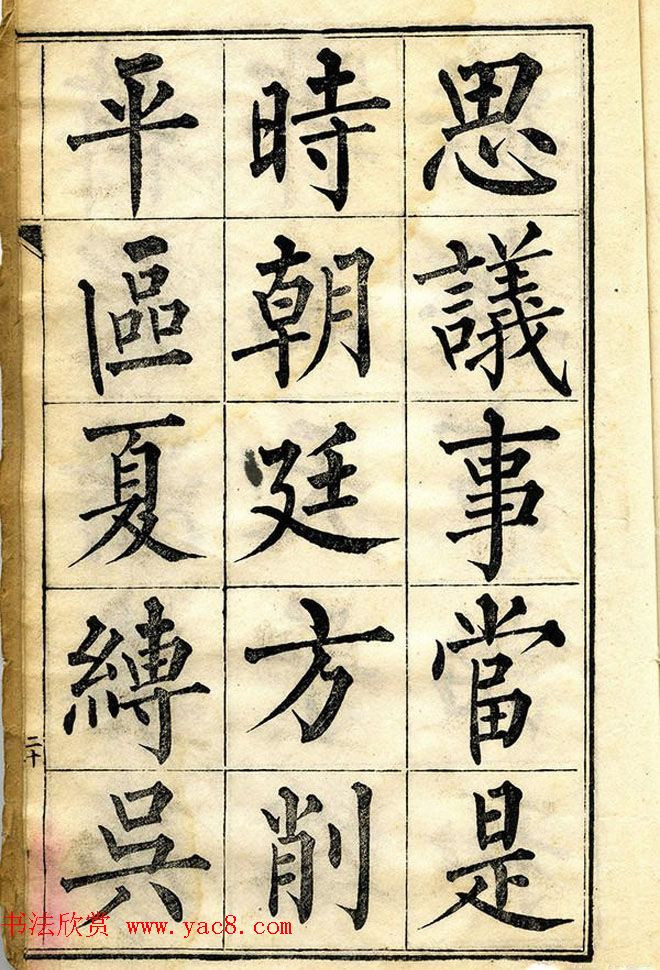 思議事當是
時朝廷方削
平區夏縛吳
二十
书法欣赏 www.yac8.com